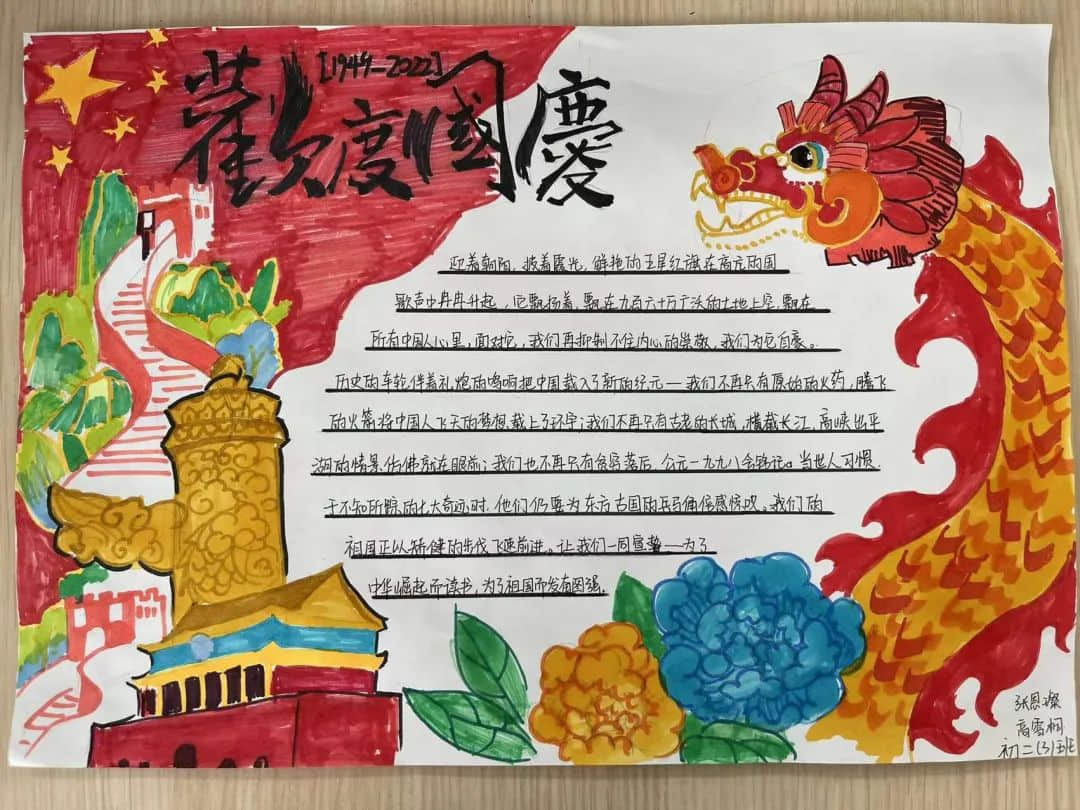 [1949-2022]
歡度國慶
迎着朝阳，披着霞光，鲜艳的五星红旗在嘹亮的国
歌声中冉冉升起，它飘扬着，飘在九百六十万广沃的土地上空，飘在
所有中国人心里，面对它，我们再抑制不住内心的崇敬，我们为它自豪。
历史的车轮伴着礼炮的鸣响把中国载入了新的纪元——我们不再只有原始的火药，腾飞
的火箭将中国人飞天的梦想载上了环宇；我们不再只有古老的长城，横截长江，高峡出平
湖的情景仿佛就在眼前；我们也不再只有贫穷落后，公元一九九八会铭记。当世人习惯
于不知所踪的七大奇迹时，他们仍要为东方古国的兵马俑倍感惊叹。我们的
祖国正以矫健的步伐飞速前进。让我们一同宣誓——为了
中华崛起而读书，为了祖国而发奋图强.
张恩璨
高雪桐
初二(3)班